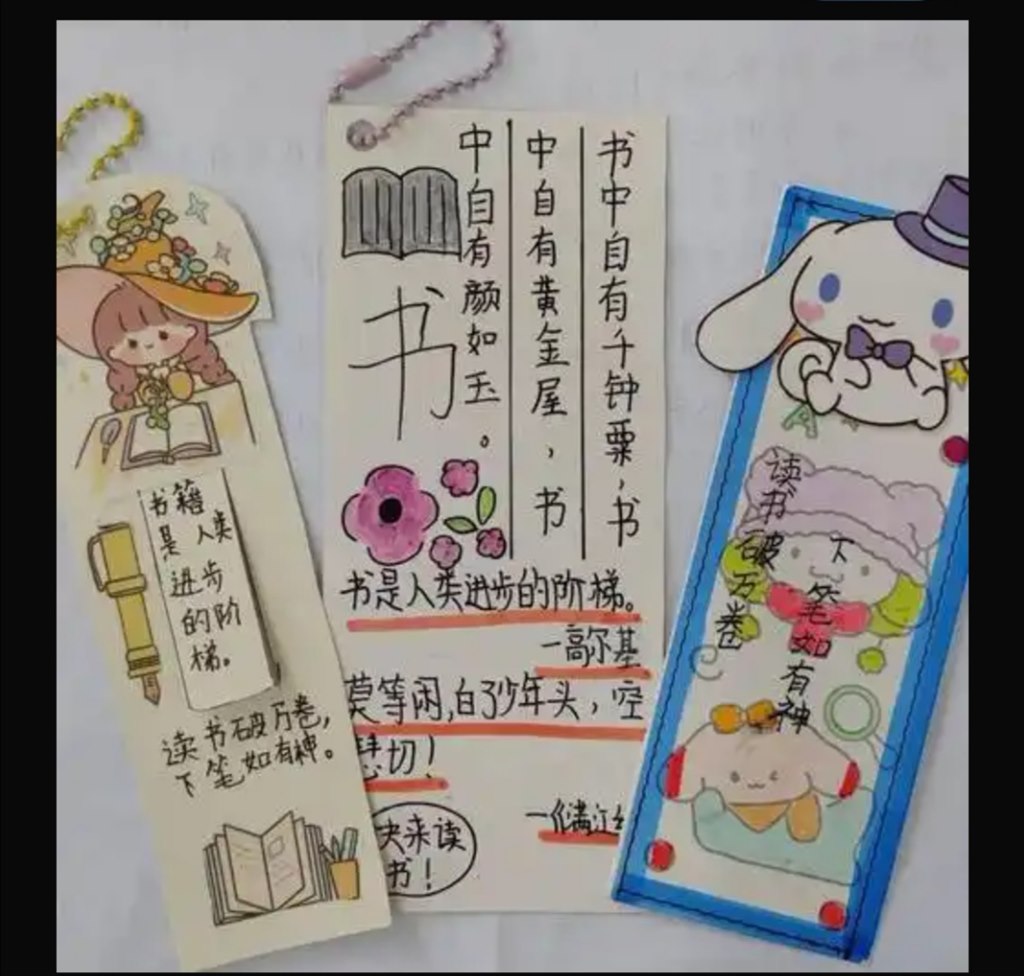 书籍
是人类
进步
的阶
梯。
读书破万卷,
下笔如有神。
书中自有千钟粟,书
中自有黄金屋,书
中自有颜如玉。
书
书是人类进步的阶梯。
一高尔基
莫等闲,白了少年头,空
悲切!
一《满江
快来读
书!
读书破万卷
下笔如有神